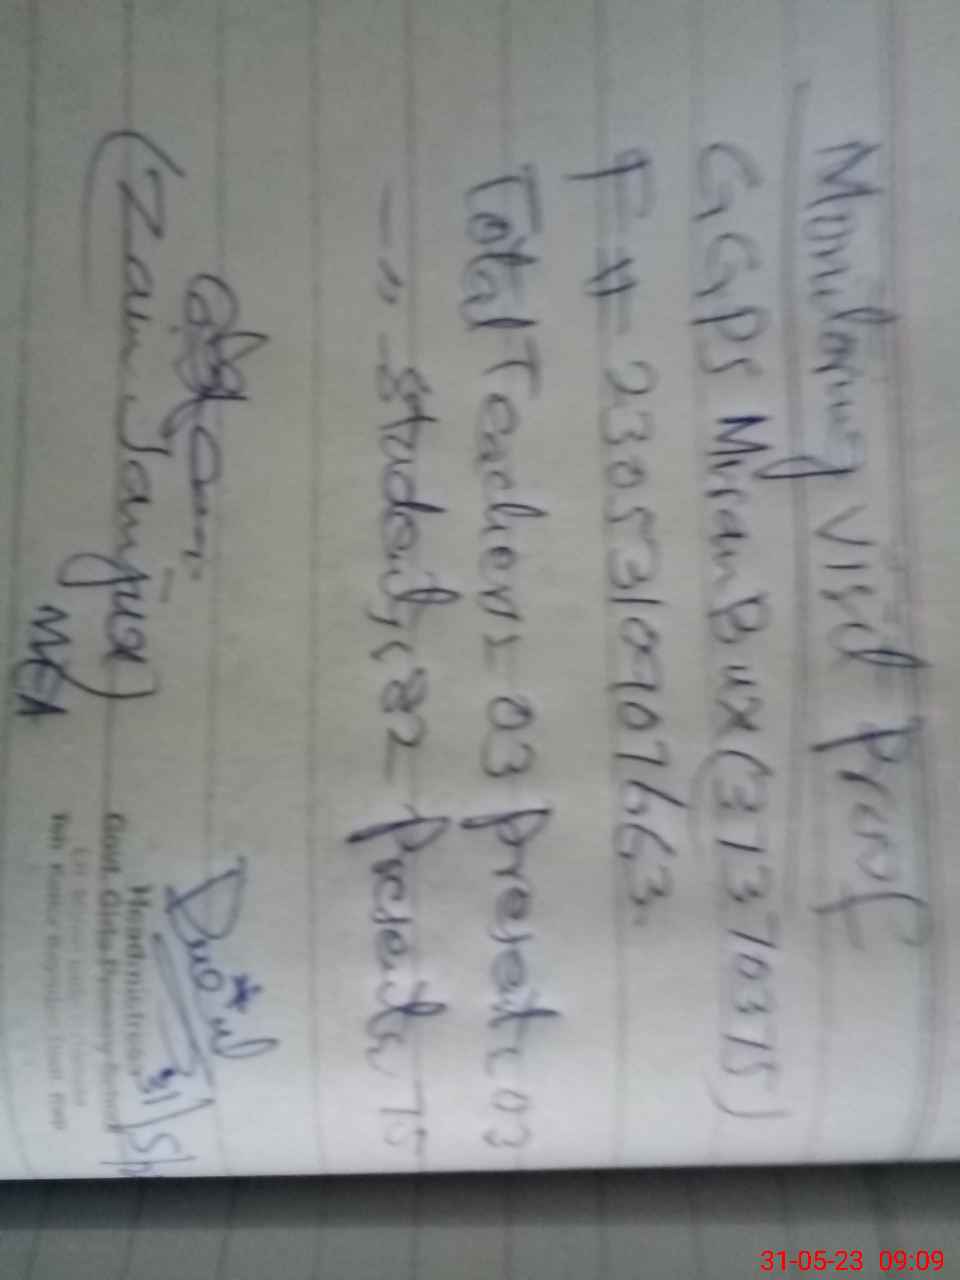 Monitoring Visit Proof
GGPS Miran Bux (31370315)
F# - 230531090107663.
Total Teachers = 03 Present = 03
-〃- Students = 82 Present = 75
(Zain Janjua)
MEA
31/5/
Headmistress
Govt. Girls Primary School
31-05-23 09:09